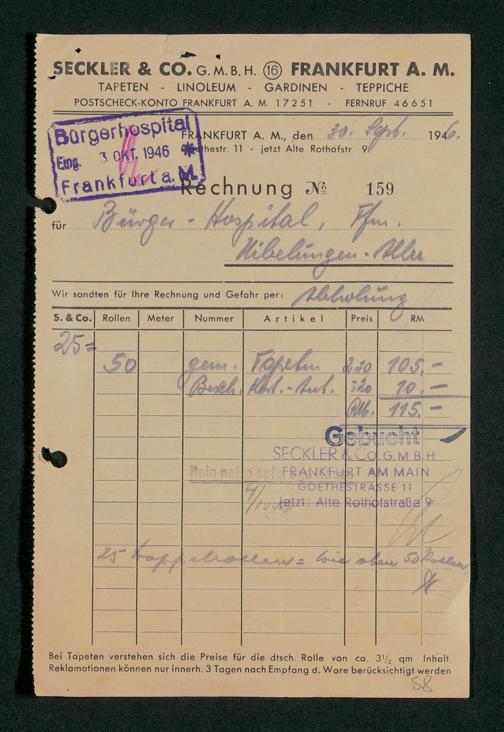 SECKLER & CO. G.M.B.H. (16) FRANKFURT A. M.
TAPETEN - LINOLEUM - GARDINEN - TEPPICHE
POSTSCHECK-KONTO FRANKFURT A. M. 17251 - FERNRUF 46651
Bürgerhospital
Eing. 3. OKT. 1946 *
Frankfurt a. M.
FRANKFURT A. M., den 30. Sept. 1946.
Goethestr. 11 - jetzt Alte Rothofstr. 9
Rechnung № 159
für Bürger-Hospital, Ffm.
Nibelungen-Allee
Wir sandten für Ihre Rechnung und Gefahr per: Abholung
S. & Co. Rollen Meter Nummer Artikel Preis RM
25=
50 gem. Tapeten 2,20 105,-
Besch. -,20 10,-
RM. 115,-
Gebucht
SECKLER & CO. G.M.B.H.
Rein netto
FRANKFURT AM MAIN
GOETHESTRASSE 11
jetzt: Alte Rothofstraße 9
25 Doppelrollen = wie oben 50 Rollen
Bei Tapeten verstehen sich die Preise für die dtsch. Rolle von ca. 3½ qm Inhalt.
Reklamationen können nur innerh. 3 Tagen nach Empfang d. Ware berücksichtigt werden
58